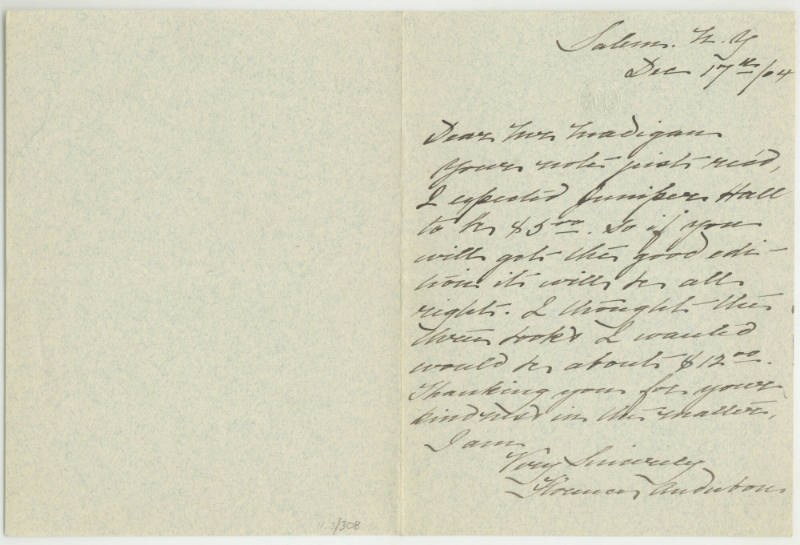 Salem. N. Y
Dec 17th/04
Dear Mr Madigan
Your note just rec'd,
I expected Juniper Hall
to be $5.00. so if you
will get the good edi-
tion it will be all
right. I thought the
three books I wanted
would be about $12.00.
Thanking you for your
kindness in the matter,
I am
Very Sincerely
Florence Audubon
/308